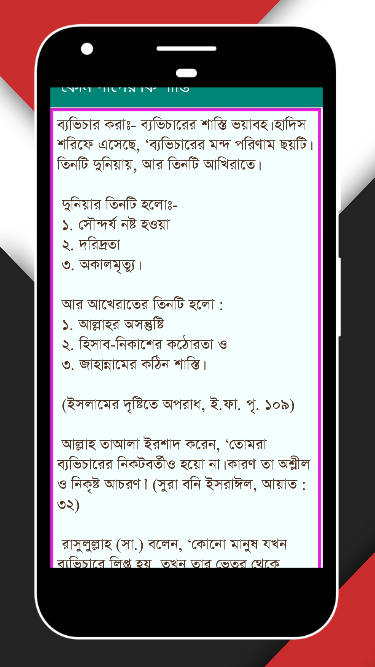 কোন পাপের কি শাস্তি
ব্যভিচার করাঃ- ব্যভিচারের শাস্তি ভয়াবহ।হাদিস
শরিফে এসেছে, ‘ব্যভিচারের মন্দ পরিণাম ছয়টি।
তিনটি দুনিয়ায়, আর তিনটি আখিরাতে।
দুনিয়ার তিনটি হলোঃ-
১. সৌন্দর্য নষ্ট হওয়া
২. দরিদ্রতা
৩. অকালমৃত্যু।
আর আখেরাতের তিনটি হলো :
১. আল্লাহর অসন্তুষ্টি
২. হিসাব-নিকাশের কঠোরতা ও
৩. জাহান্নামের কঠিন শাস্তি।
(ইসলামের দৃষ্টিতে অপরাধ, ই.ফা. পৃ. ১০৯)
আল্লাহ তাআলা ইরশাদ করেন, ‘তোমরা
ব্যভিচারের নিকটবর্তীও হয়ো না।কারণ তা অশ্লীল
ও নিকৃষ্ট আচরণ। (সুরা বনি ইসরাঈল, আয়াত :
৩২)
রাসুলুল্লাহ (সা.) বলেন, ‘কোনো মানুষ যখন
ব্যভিচারে লিপ্ত হয়, তখন তার ভেতর থেকে